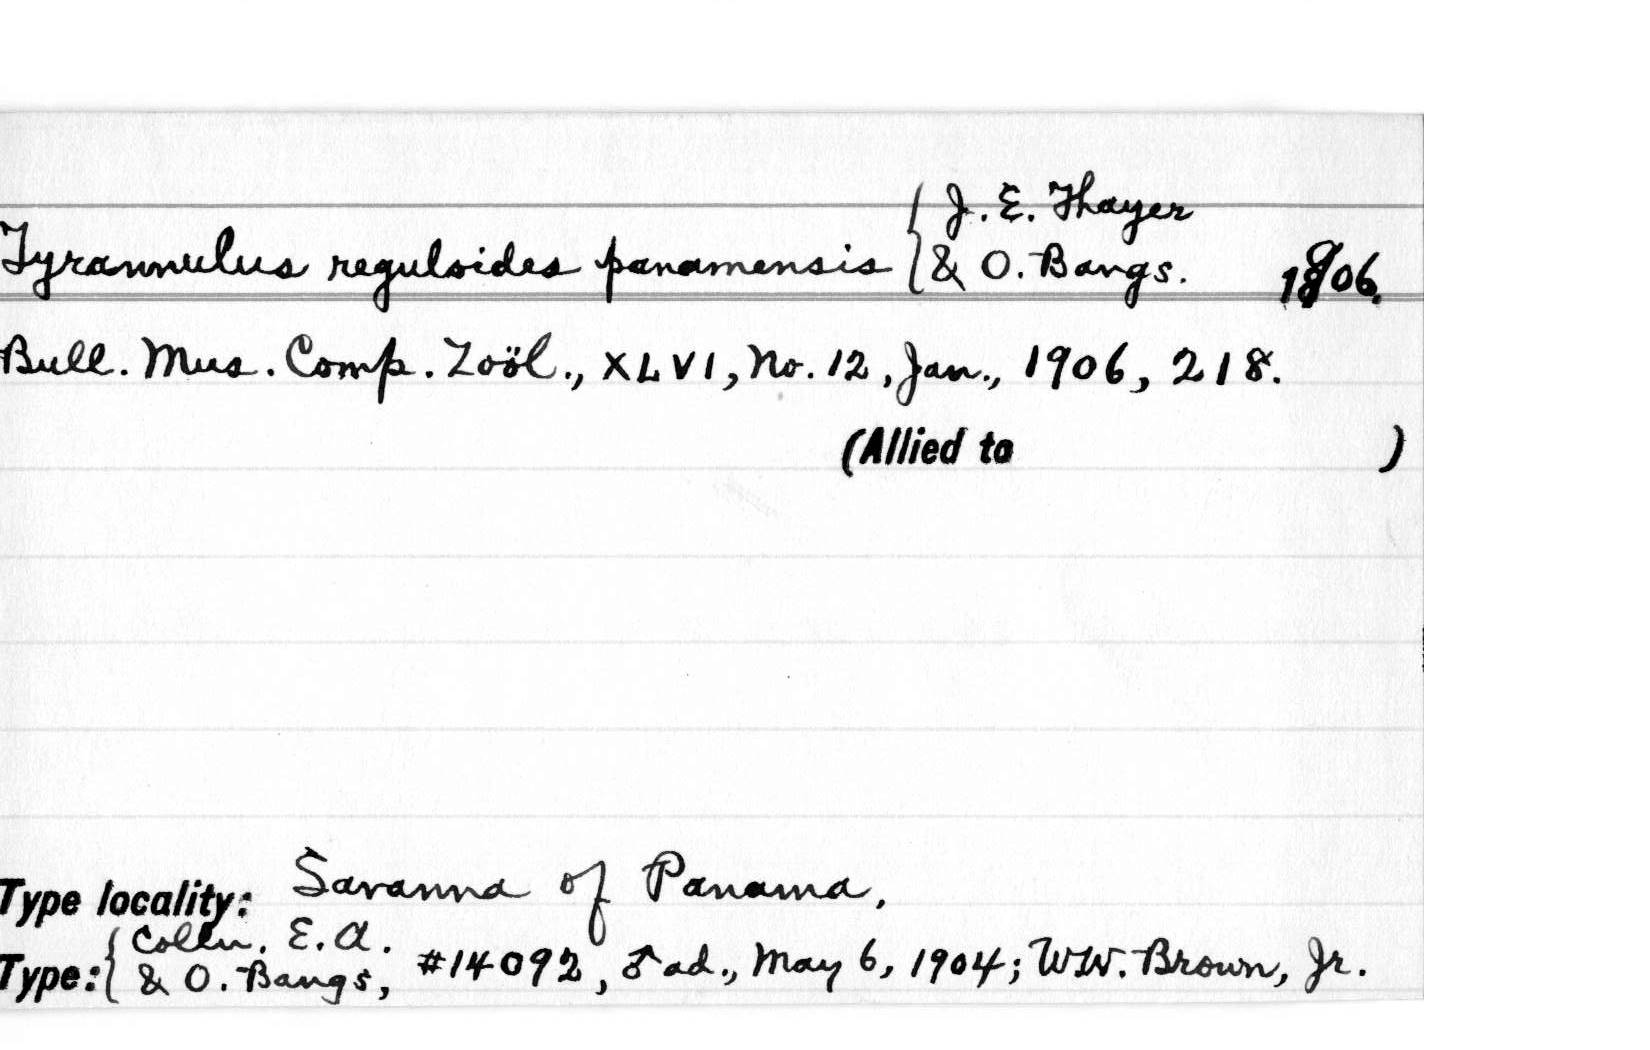 Tyrannulus reguloides panamensis { J. E. Thayer & O. Bangs. 1906.
Bull. Mus. Comp. Zoöl., XLVI, No. 12, Jan., 1906, 218.
(Allied to )
Type locality: Savanna of Panama,
Type: { Colln. E. A. & O. Bangs, #14092, ♂ ad., May 6, 1904; W.W. Brown, Jr.